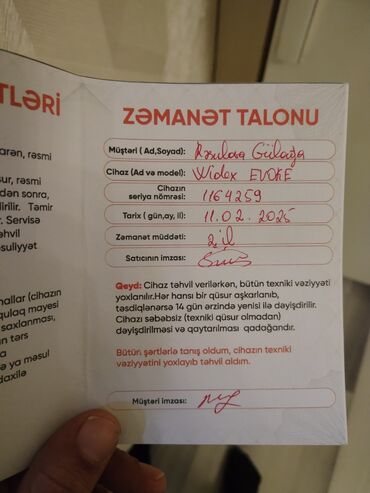 TLƏRİ
arən, rəsmi
sur, rəsmi
dən sonra,
dirilir. Təmir
. Servisə
əhvil
suliyyət
allar (cihazın
qulaq mayesi
saxlanması,
n tərs
a
ə ya məsul
daxilə
ZƏMANƏT TALONU
Müştəri ( Ad,Soyad): Rəsulova Gülağa
Cihaz (Ad və model): Widex EVOKE
Cihazın
seriya nömrəsi: 1164259
Tarix ( gün,ay, il): 11.02.2025
Zəmanət müddəti: 2 il
Satıcının imzası:
Qeyd: Cihaz təhvil verilərkən, bütün texniki vəziyyəti
yoxlanılır.Hər hansı bir qüsur aşkarlanıb,
təsdiqlənərsə 14 gün ərzində yenisi ilə dəyişdirilir.
Cihazı səbəbsiz (texniki qüsur olmadan)
dəyişdirilməsi və qaytarılması qadağandır.
Bütün şərtlərlə tanış oldum, cihazın texniki
vəziyyətini yoxlayıb təhvil aldım.
Müştəri imzası: